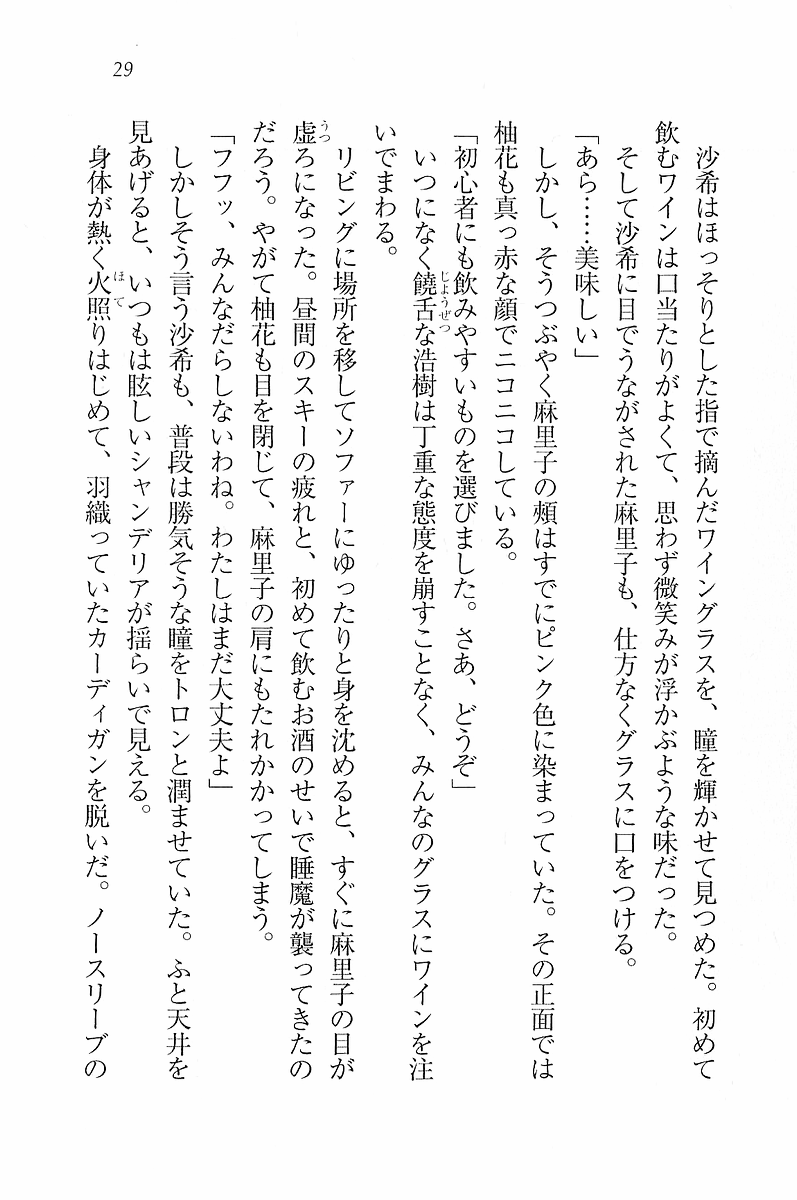 29
沙希はほっそりとした指で摘んだワイングラスを、瞳を輝かせて見つめた。初めて
飲むワインは口当たりがよくて、思わず微笑みが浮かぶような味だった。
そして沙希に目でうながされた麻里子も、仕方なくグラスに口をつける。
「あら……美味しい」
しかし、そうつぶやく麻里子の頰はすでにピンク色に染まっていた。その正面では
柚花も真っ赤な顔でニコニコしている。
「初心者にも飲みやすいものを選びました。さあ、どうぞ」
いつになく饒舌な浩樹は丁重な態度を崩すことなく、みんなのグラスにワインを注
じようぜつ
いでまわる。
リビングに場所を移してソファーにゆったりと身を沈めると、すぐに麻里子の目が
虚ろになった。昼間のスキーの疲れと、初めて飲むお酒のせいで睡魔が襲ってきたの
うつ
だろう。やがて柚花も目を閉じて、麻里子の肩にもたれかかってしまう。
「フフッ、みんなだらしないわね。わたしはまだ大丈夫よ」
しかしそう言う沙希も、普段は勝気そうな瞳をトロンと潤ませていた。ふと天井を
見あげると、いつもは眩しいシャンデリアが揺らいで見える。
身体が熱く火照りはじめて、羽織っていたカーディガンを脱いだ。ノースリーブの
ほて